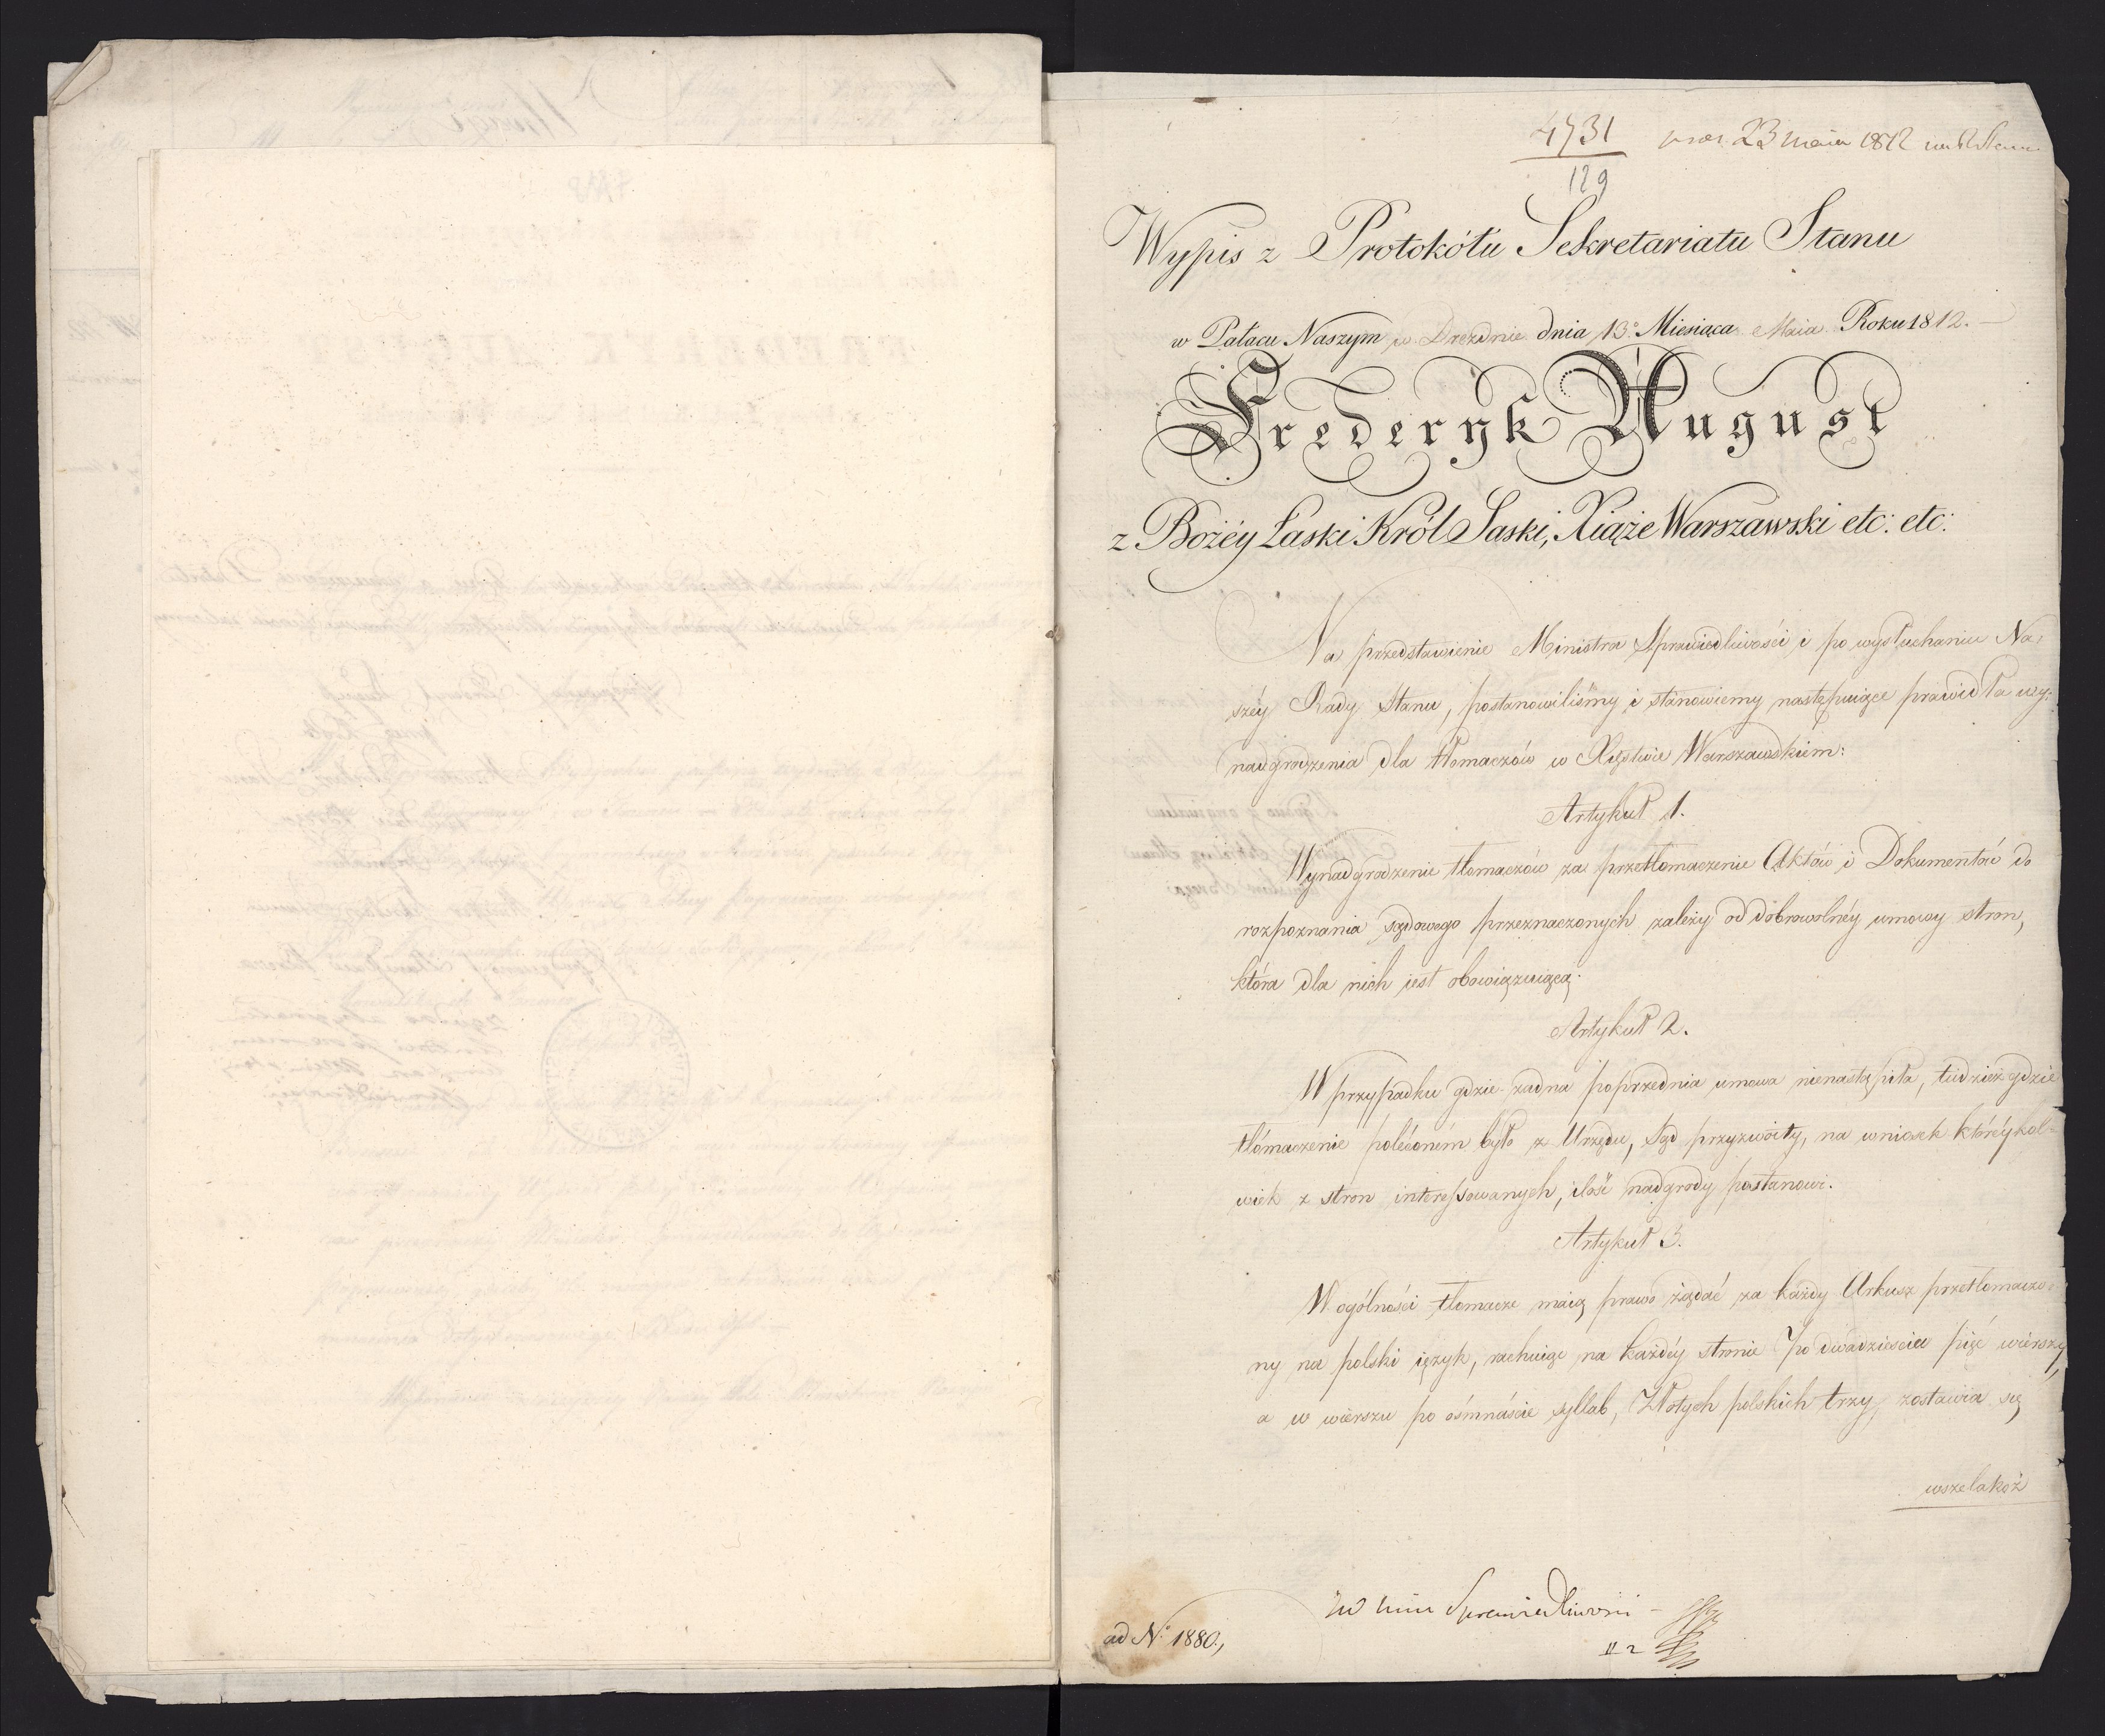 4731 23 maia 1812
129
Wypis z Protokółu Sekretariatu Stanu
w Pałacu Naszym w Dreznie dnia 13º Miesiąca Maia Roku 1812.
Frederyk August
z Bożéy Łaski Król Saski, Xiąże Warszawski etc: etc:
Na przedstawienie Ministra Sprawiedliwości i po wysłuchaniu Na-
széy Rady Stanu, postanowiliśmy i stanowiemy następuiące prawidła wy-
nadgrodzenia dla tłomaczów w Xięstwie Warszawskiem:
Artykuł 1.
Wynadgrodzenie tłomaczów za przetłomaczenie Aktów i Dokumentów do
rozpoznania sądowego przeznaczonych zależy od dobrowolnéy umowy stron,
która dla nich iest obowiązuiącą.
Artykuł 2.
W przypadku gdzie żadna poprzednia umowa nienastąpiła, tudzież gdzie
tłómaczenie poleconém było z Urzędu, Sąd przyzwoity, na wniosek któréykol-
wiek z stron interessowanych, ilość nadgrody postanowi.
Artykuł 3.
W ogólności tłomacze maią prawo żądać za każdy Arkusz przetłomaczo-
ny na polski ięzyk, rachuiąc na każdéy stronie po dwadzieścia pięć wierszy,
a w wierszu po ośmnaście syllab, Złotych polskich trzy, zostawia się
wszelakoż
Sprawiedliwosci
ad Nº 1880.,